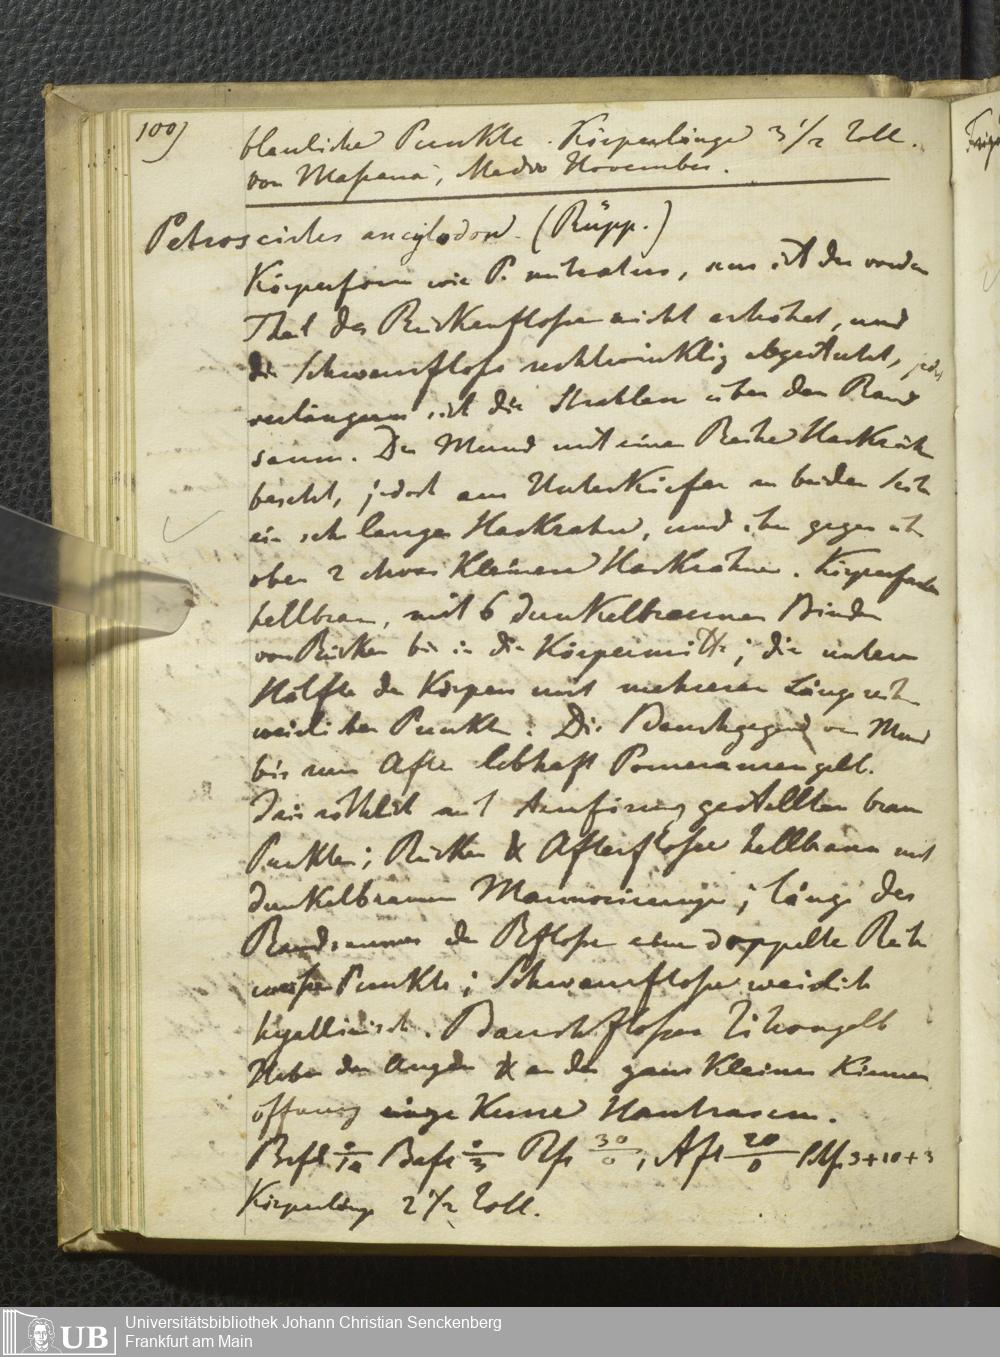 100)
blauliche Punkte. Körperlänge 3 1/2 Zoll.
von Massaua, November.
Petroscirtes ancylodon. (Rüpp.)
Körperform wie P. mitratus, nur ist der vordere
Theil der Rückenflosse nicht erhöhet, und
die Schwanzflosse rechtwinklig abgestutzt, jedoch
verlängern sich die Strahlen über den Rand
saum. Der Mund mit einer Reihe Hackzähne
besetzt, jedoch am Unterkiefer an beiden Seiten
ein sehr langer Hackzahn, und ihm gegen über
oben 2 etwas Kleinere Hackzähne. Körperfarbe
hellbraun, mit 6 dunkelbraunen Binden
vom Rücken bis in die Körpermitte; die untere
Hälfte des Körpers mit mehreren Längsreihen
weislicher Punkte. Die Bauchgegend vom Mund
bis zum After lebhaft Pomeranzengelb.
Iris röthlich mit gestellten braun
Punkten; Rücken & Afterflosse hellbraun mit
dunkelbraunen Marmorirungen; längs des
Randsaumes der Rflosse eine doppelte Reihe
weisse Punkte; Schwanzflosse weislich
hyallinisch. Bauchflossen Zitrongelb
Ueber den Augen & an der ganz Kleinen Kiemen
öffnung einige Kurze Hautfasern.
Brfl 0/12 Bafl 0/3 Rfl 30/0, Afl 20/0 3+10+3
Körperlänge 2 1/2 Zoll.
UB
Universitätsbibliothek Johann Christian Senckenberg
Frankfurt am Main